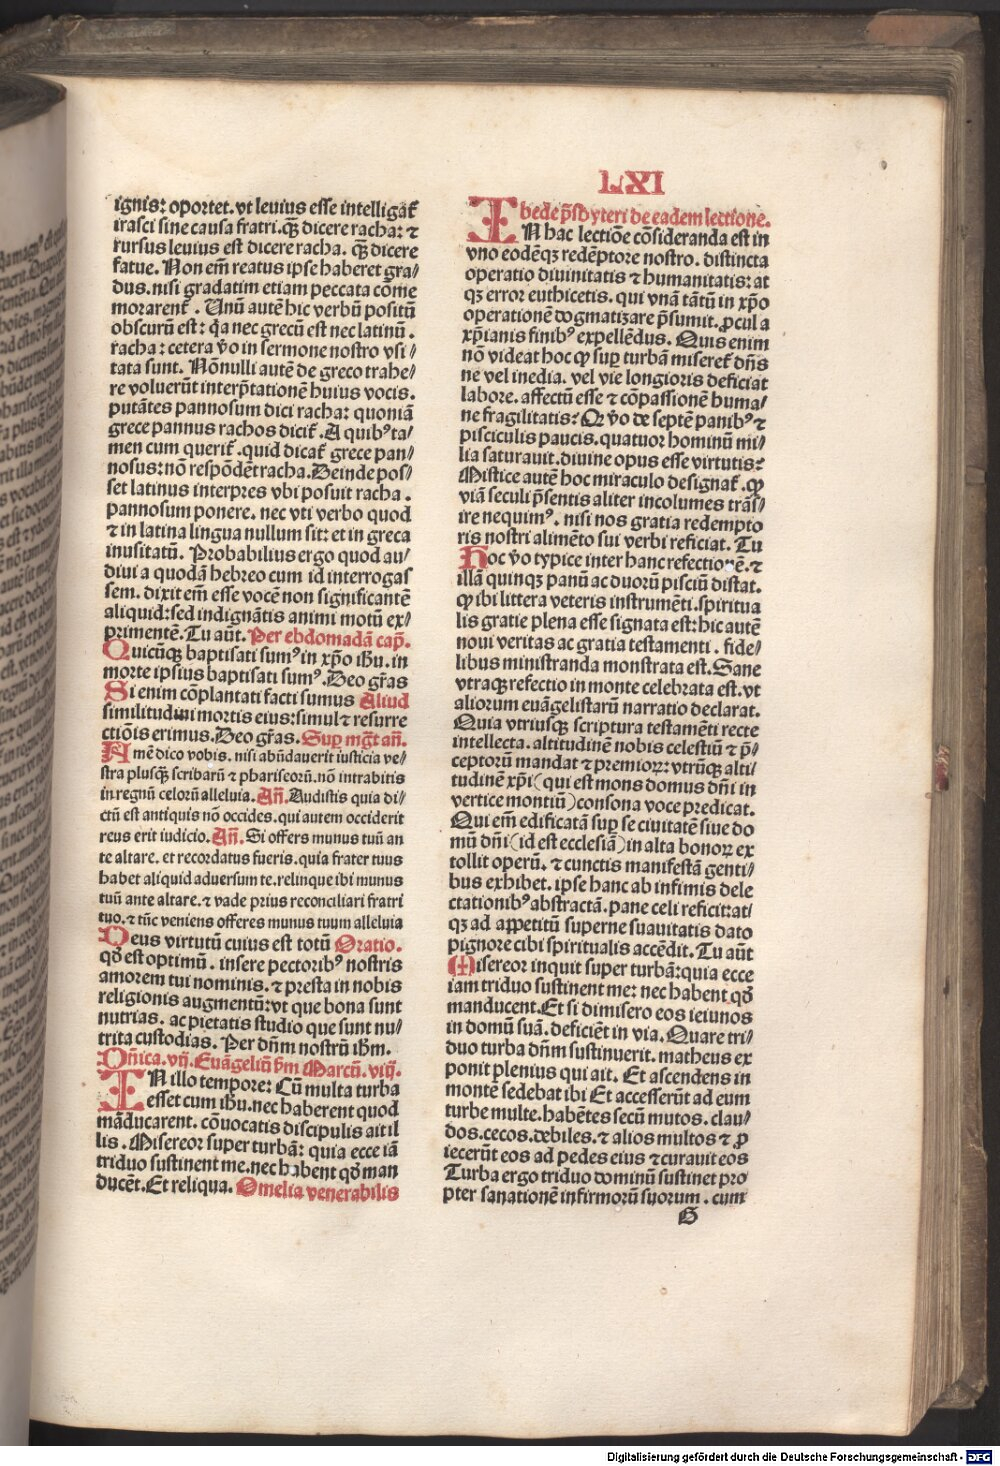 LXI
ignis: oportet. vt leuius esse intelligat᷑
irasci sine causa fratri. qꝫ̄ dicere racha: ⁊
rursus leuius est dicere racha. qꝫ̄ dicere
fatue. Non em̄ reatus ipse haberet gra⸗
dus. nisi gradatim etiam peccata cōme
morarent᷑. Unū autē hic verbū positū
obscurū est: q̇a nec grecū est nec latinū.
racha: cetera v̄o in sermone nostro vsi⸗
tata sunt. Nōnulli autē de greco trahe⸗
re voluerūt interp̄tationē huius vocis.
putātes pannosum dici racha: quoniā
grece pannus rachos dicit᷑. A quibꝰ ta⸗
men cum querit᷑. quid dicat᷑ grece pan⸗
nosus: nō respōdēt racha. Deinde pos⸗
set latinus interpres vbi posuit racha.
pannosum ponere. nec vti verbo quod
⁊ in latina lingua nullum sit: et in greca
inusitatū. Probabilius ergo quod au⸗
diui a quodā hebreo cum id interrogas
sem. dixit em̄ esse vocē non significantē
aliquid: sed indignātis animi motū ex⸗
primentē. Tu aūt. Per ebdomadā cap̄.
Quicūqꝫ baptisati sumꝰ in xp̄o ihū. in
morte ipsius baptisati sumꝰ. Deo gr̄as
Si enim cōplantati facti sumus Aliud
similitudini mortis eius: simul ⁊ resurre
ctiōis erimus. Deo gr̄as. Sup̱ mgt̄ an̄.
Amē dico vobis. nisi abūdauerit iusticia ve⸗
stra plusqꝫ̄ scribarū ⁊ phariseorū. nō intrabitis
in regnū celorū alleluia. An̄. Audistis quia di⸗
ctū est antiquis nō occides. qui autem occiderit
reus erit iudicio. An̄. Si offers munus tuū an
te altare. et recordatus fueris. quia frater tuus
habet aliquid aduersum te. relinque ibi munus
tuū ante altare. ⁊ vade prius reconciliari fratri
tuo. ⁊ tūc veniens offeres munus tuum alleluia
Deus virtutū cuius est totū Oratio.
qđ est optimū. insere pectoribꝰ nostris
amorem tui nominis. ⁊ presta in nobis
religionis augmentū: vt que bona sunt
nutrias. ac pietatis studio que sunt nu⸗
trita custodias. Per dn̄m nostrū ihm̄.
Dn̄ica. vij. Euāgeliū s̄m Marcū. viij.
IN illo tempore: Cū multa turba
esset cum ihū. nec haberent quod
māducarent. cōuocatis discipulis ait il
lis. Misereor super turbā: quia ecce iā
triduo sustinent me. nec habent qđ man
ducēt. Et reliqua. Omelia venerabilis
bede p̄sbyteri de eadem lectione.
IN hac lectiōe cōsideranda est in
vno eodēqꝫ redēptore nostro. distincta
operatio diuinitatis ⁊ humanitatis: at
qꝫ error euthicetis. qui vnā tātū in xp̄o
operationē dogmatizare p̄sumit. ꝓcul a
xp̄ianis finibꝰ expellēdus. Quis enim
nō videat hoc ꝙ sup̱ turbā miseret᷑ dn̄s
ne vel inedia. vel vie longioris deficiat
labore. affectū esse ⁊ cōpassionē huma⸗
ne fragilitatis? Q v̄o de septē panibꝰ ⁊
pisciculis paucis. quatuor hominū mi⸗
lia saturauit. diuine opus esse virtutis?
Mistice autē hoc miraculo designat᷑. ꝙ
viā seculi p̄sentis aliter incolumes trās⸗
ire nequimꝰ. nisi nos gratia redempto
ris nostri alimēto sui verbi reficiat. Tu
Hoc v̄o typice inter hanc refectionē. ⁊
illā quinqꝫ panū ac duorū pisciū distat.
ꝙ ibi littera veteris instrumēti. spiritua
lis gratie plena esse signata est: hic autē
noui veritas ac gratia testamenti. fide⸗
libus ministranda monstrata est. Sane
vtraqꝫ refectio in monte celebrata est. vt
aliorum euāgelistarū narratio declarat.
Quia vtriusqꝫ scriptura testamēti recte
intellecta. altitudinē nobis celestiū ⁊ p̄⸗
ceptorū mandat ⁊ premioꝝ: vtrūqꝫ alti⸗
tudinē xp̄i (qui est mons domus dn̄i in
vertice montiū) consona voce predicat.
Qui em̄ edificatā sup̱ se ciuitatē siue do
mū dn̄i (id est ecclesiā) in alta bonoꝝ ex
tollit operū. ⁊ cunctis manifestā genti⸗
bus exhibet. ipse hanc ab infimis dele
ctationibꝰ abstractā. pane celi reficit: at⸗
qꝫ ad appetitū superne suauitatis dato
pignore cibi spiritualis accēdit. Tu aūt
Misereor inquit super turbā: quia ecce
iam triduo sustinent me: nec habent qđ
manducent. Et si dimisero eos ieiunos
in domū suā. deficiēt in via. Quare tri⸗
duo turba dn̄m sustinuerit. matheus ex
ponit plenius qui ait. Et ascendens in
montē sedebat ibi Et accesserūt ad eum
turbe multe. habētes secū mutos. clau⸗
dos. cecos. debiles. ⁊ alios multos ⁊ ꝓ
iecerūt eos ad pedes eius ⁊ curauit eos
Turba ergo triduo dominū sustinet pro
pter sanationē infirmorū suorum. cum
G
Digitalisierung gefördert durch die Deutsche Forschungsgemeinschaft - DFG